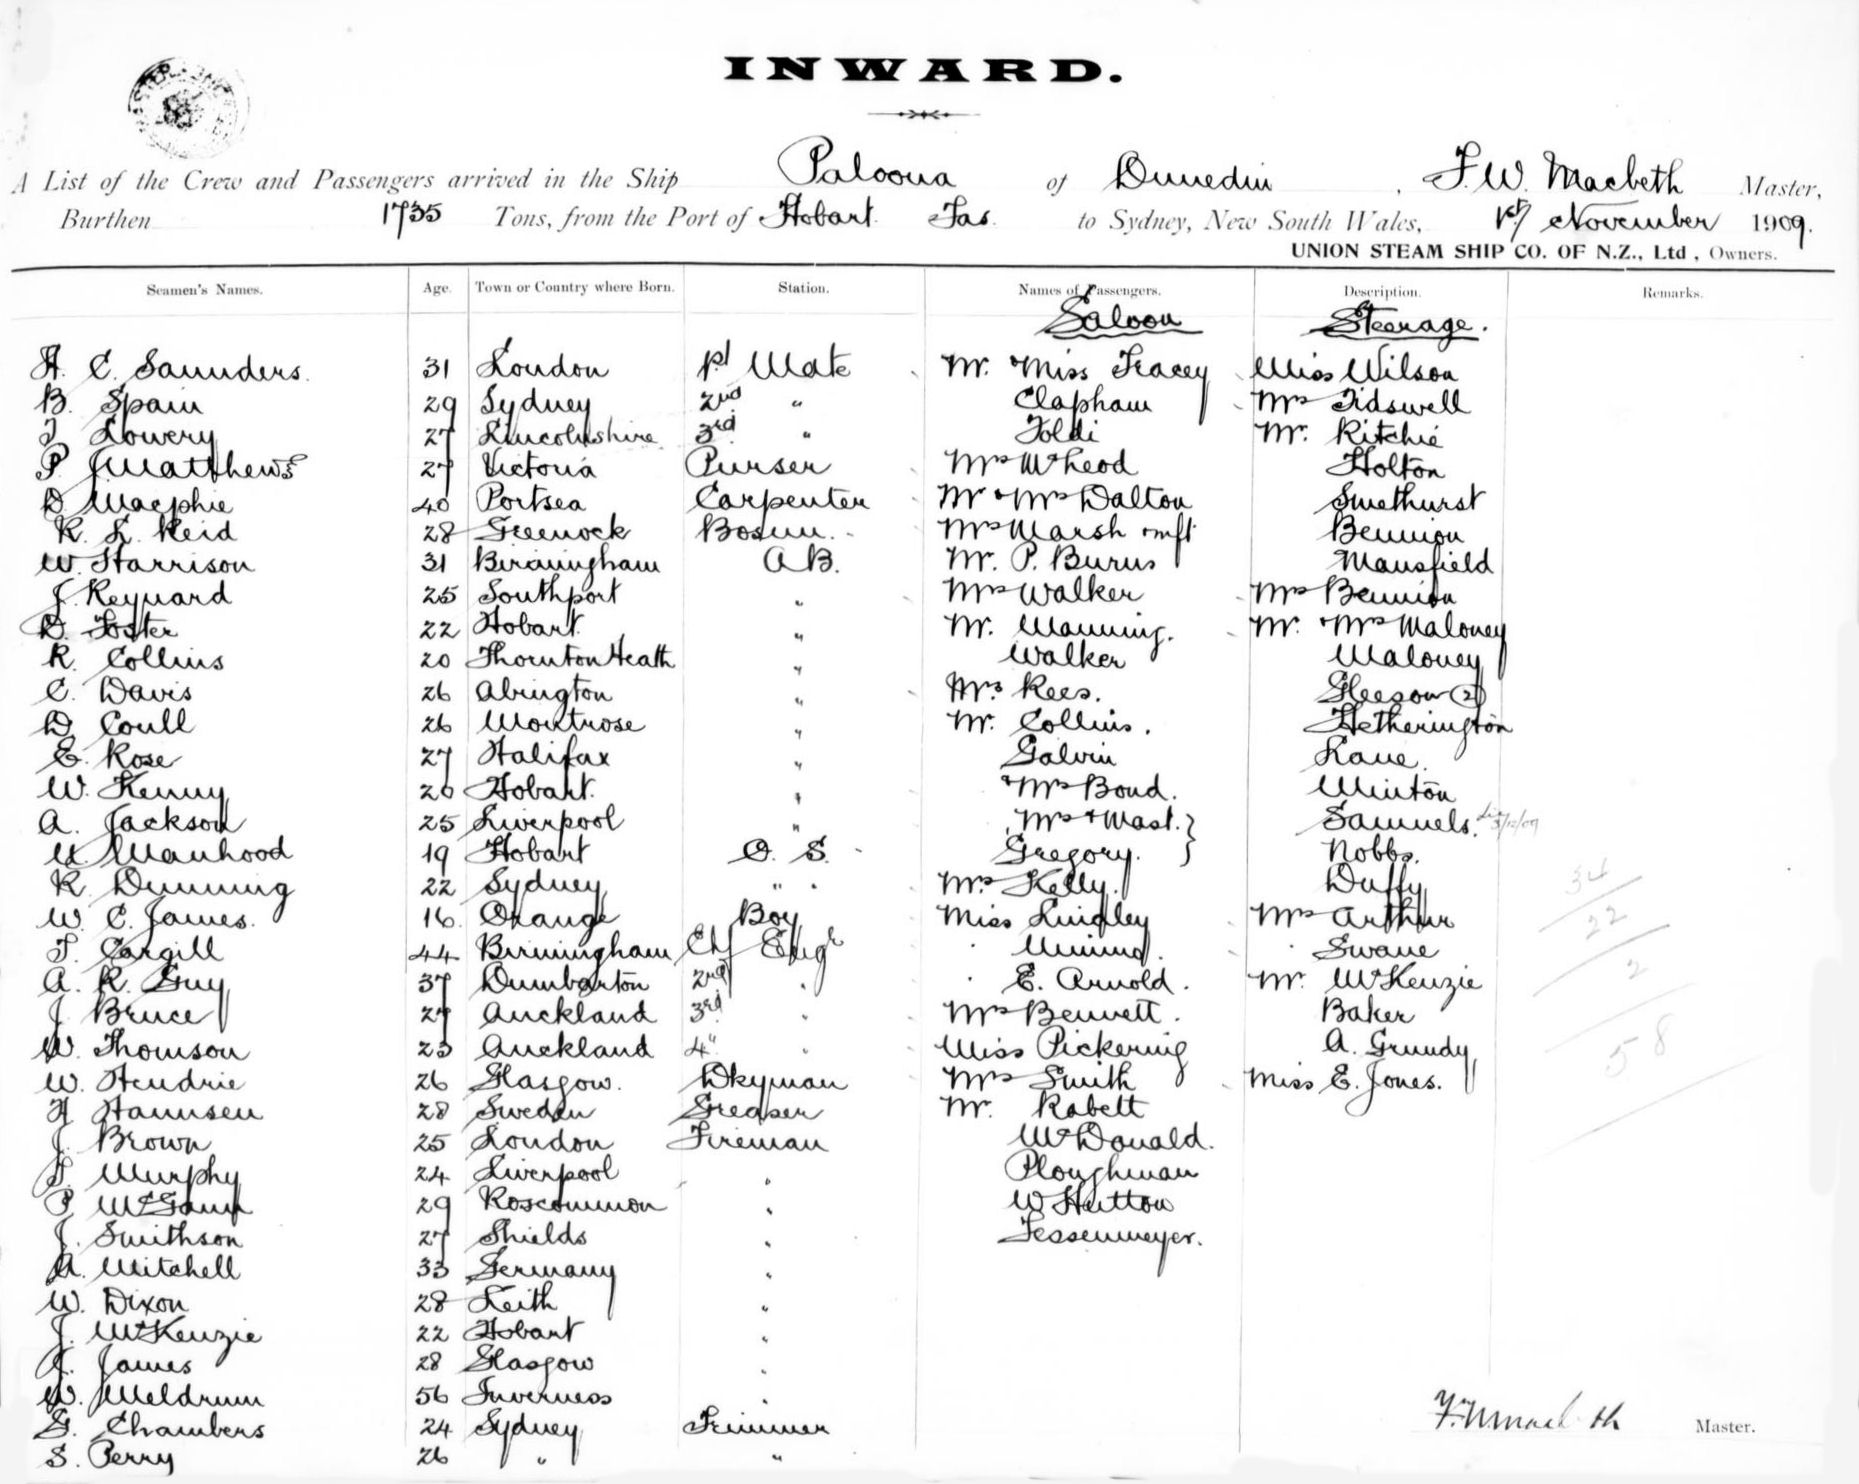 INWARD.
A List of the Crew and Passengers arrived in the Ship Paloona of Dunedin, F. W. Macbeth Master,
Burthen 1735 Tons, from the Port of Hobart Tas. to Sydney, New South Wales, 1st November 1909.
UNION STEAM SHIP CO. OF N.Z., Ltd, Owners.
Seamen's Names. Age. Town or Country where Born. Station. Names of Passengers. Description. Remarks.
Saloon Steerage.
H. C. Saunders. 31 London 1st Mate Mr. Miss Tracey Miss Wilson
B. Spain 29 Sydney 2nd " Clapham Mrs Tidswell
T Lowery 27 Lincolnshire 3rd " Toldi Mr. Ritchie
P. J. Matthews 27 Victoria Purser Mrs McLeod Holton
D Macphie 40 Portsea Carpenter Mr + Mrs Dalton Smethurst
R. L. Reid 28 Greenock Bosun. Mrs Marsh + inft Bennion
W. Harrison 31 Birmingham A.B. Mr. P. Burns Mansfield
J. Reynard 25 Southport " Mrs Walker Mrs Bennion
D. Foster 22 Hobart " Mr. Manning. Mr. + Mrs Maloney
R. Collins 20 Thornton Heath " Walker Maloney
C. Davis 26 Abington " Mrs Rees. Gleeson (2)
D Coull 26 Montrose " Mr. Collins. Hetherington
E. Rose 27 Halifax " Galvin Lane.
W. Kenny 20 Hobart. " + Mrs Bond. Winton
A. Jackson 25 Liverpool " Mrs + Mast. } Samuels. 3/12/09
Manhood 19 Hobart O. S. Gregory. } Nobbs.
R. Dunning 22 Sydney " Mrs Kelly. Duffy
W. C. James. 16 Orange Boy Miss Lingley Mrs Arthur
T. Cargill 44 Birmingham Chf Engr Swane
A. R. Guy 37 Dumbarton 2nd " E. Arnold. Mr. McKenzie
J Bruce 27 Auckland 3rd " Mrs Bennett. Baker
W. Thomson 23 Auckland 4" " Miss Pickering A. Grundy
W. Hendrie 26 Glasgow. Dkyman Mrs Smith Miss E. Jones.
H Hannsen 28 Sweden Greaser Mr. Rabett
J. Brown 25 London Fireman McDonald.
T. Murphy 24 Liverpool " Ploughman
P McGann 29 Roscommon " W Hutton
J. Smithson 27 Shields " Fessenmeyer.
A. Mitchell 33 Germany "
W. Dixon 28 Leith "
J. McKenzie 22 Hobart "
J. James 28 Glasgow "
W. Meldrum 56 Inverness "
G. Chambers 24 Sydney Trimmer
S. Perry 26 " "
34
22
2
58
F. W. Macbeth Master.